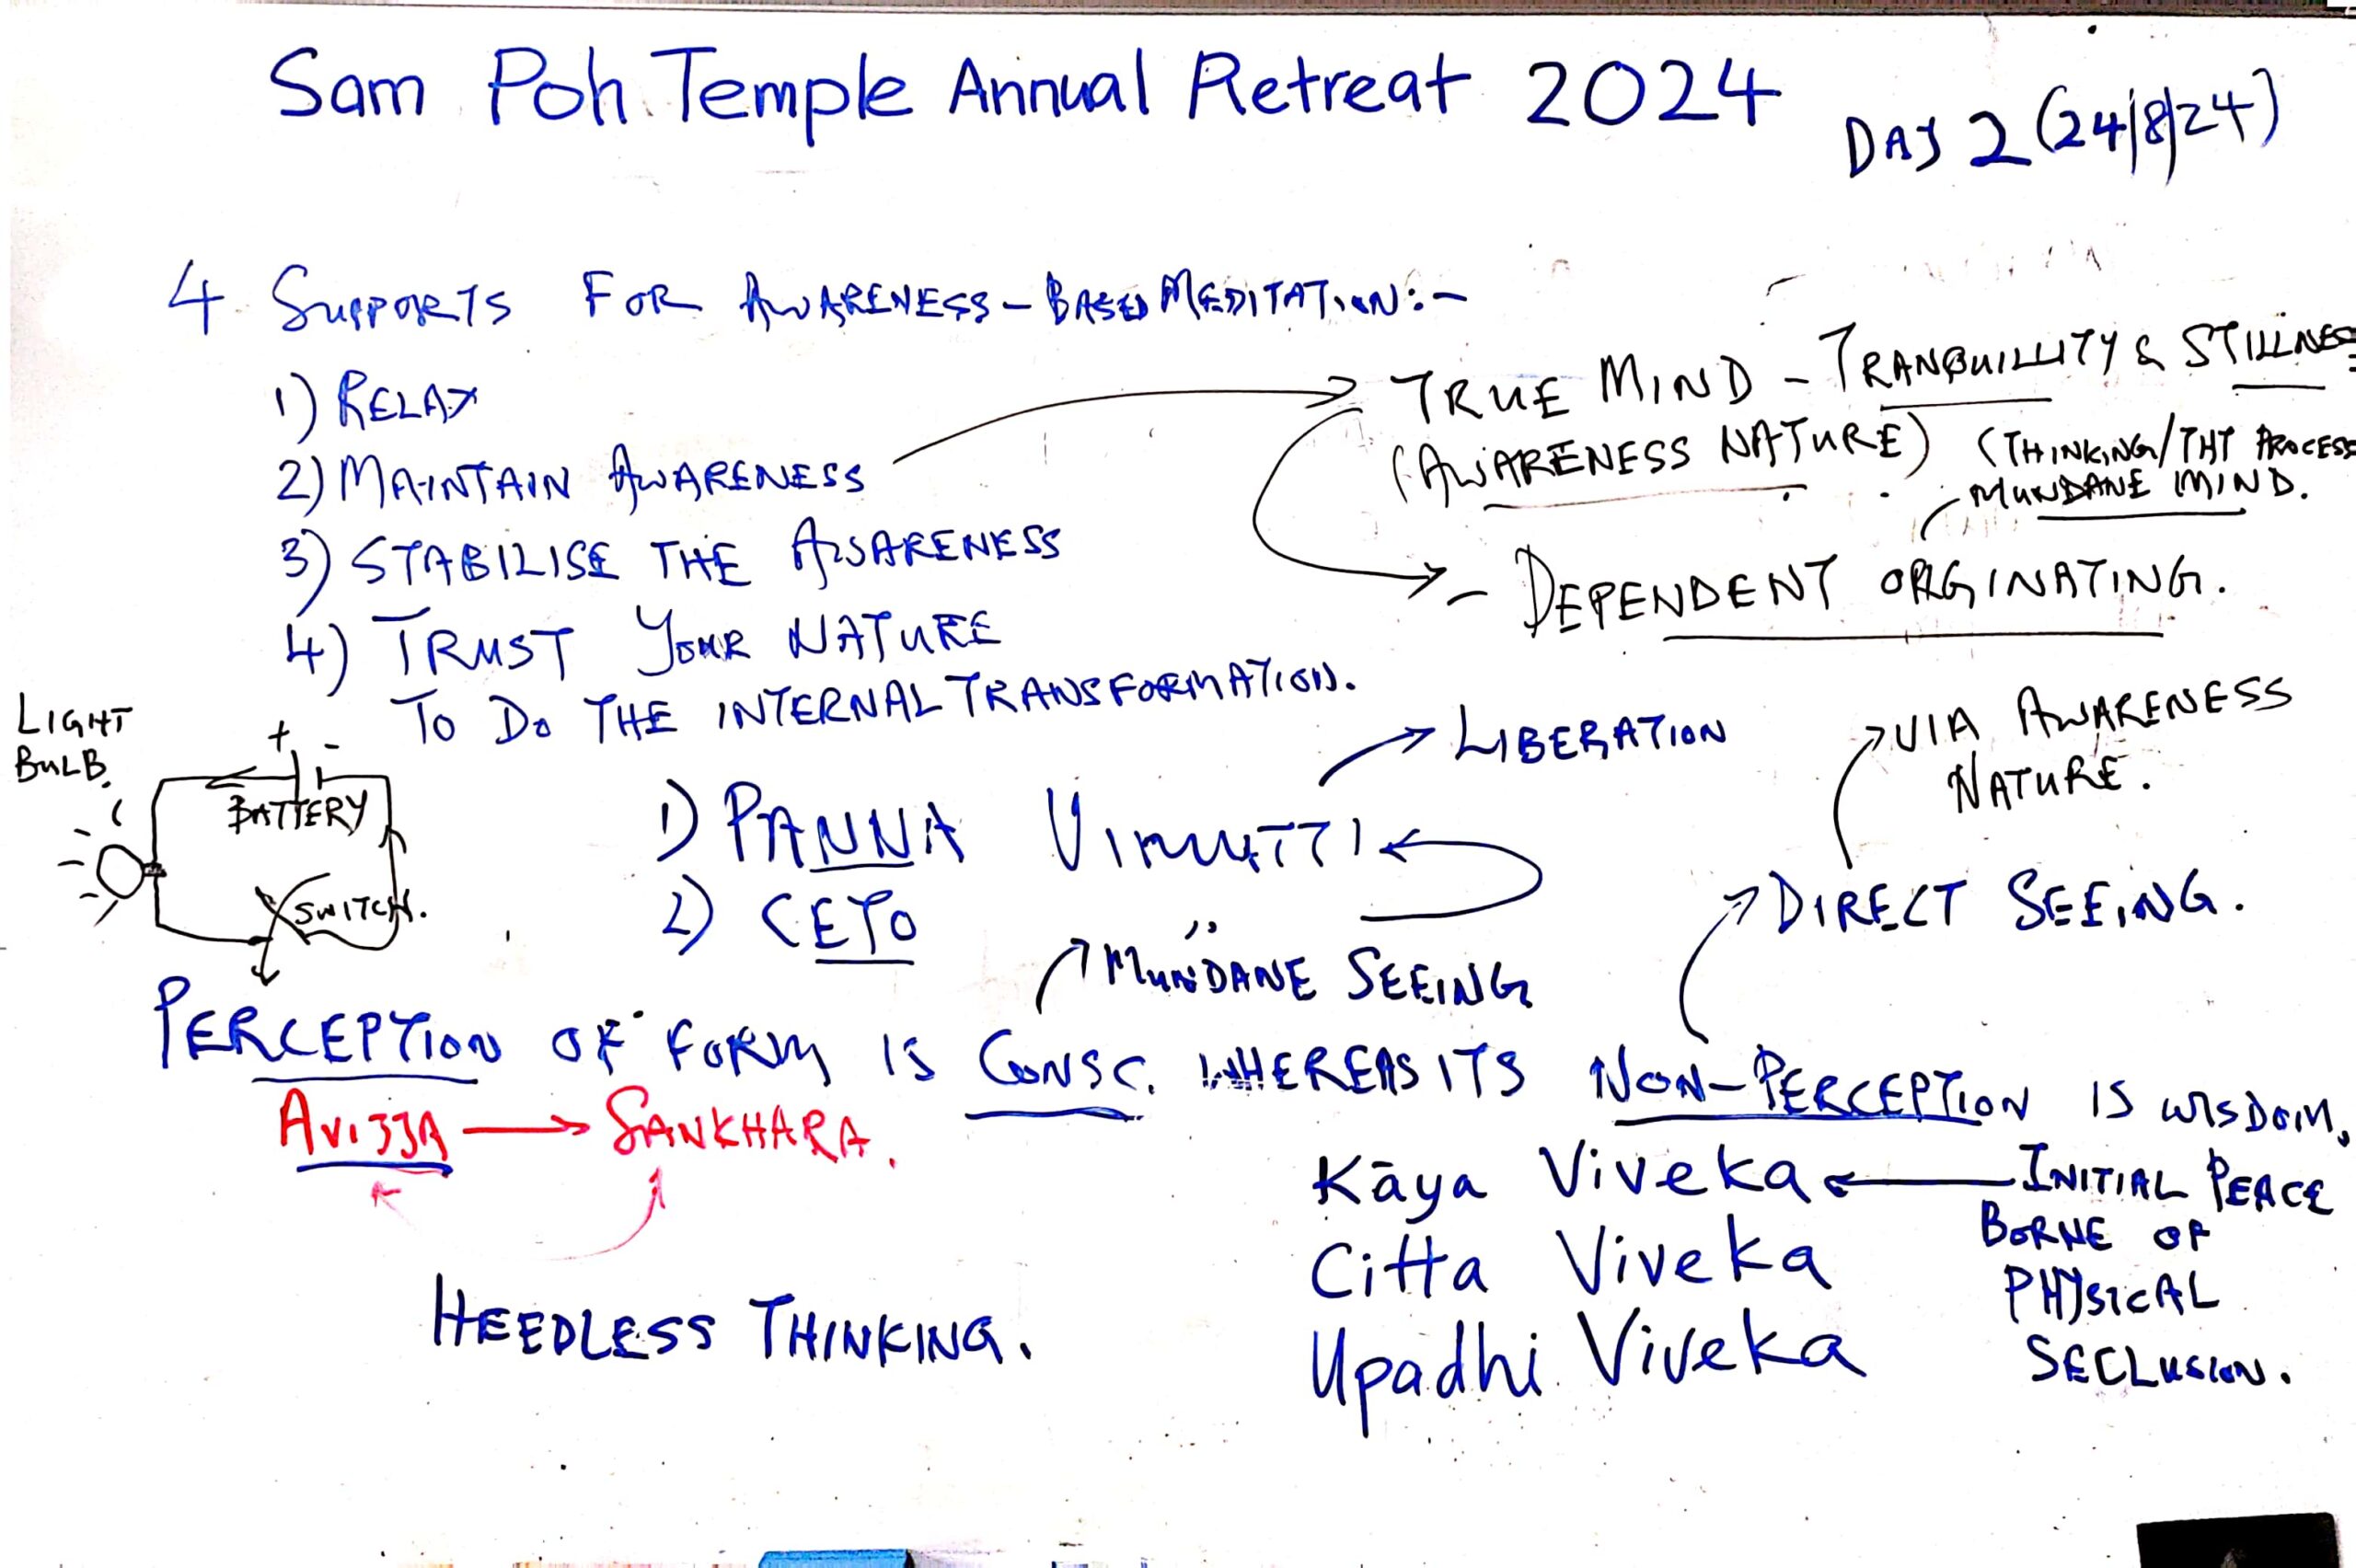 Sam Poh Temple Annual Retreat 2024
DAY 2 (24/8/24)
4 SUPPORTS FOR AWARENESS-BASED MEDITATION:-
1) RELAX
2) MAINTAIN AWARENESS
3) STABILISE THE AWARENESS
4) TRUST YOUR NATURE
TO DO THE INTERNAL TRANSFORMATION.
TRUE MIND - TRANQUILLITY & STILLNESS
(AWARENESS NATURE) (THINKING/THT PROCESS
MUNDANE MIND.
- DEPENDENT ORGINATING.
LIGHT
BULB.
+ -
BATTERY
SWITCH.
1) PANNA VIMUTTI
LIBERATION
2) CETO "
VIA AWARENESS
NATURE.
DIRECT SEEING.
MUNDANE SEEING
PERCEPTION OF FORM IS CONSC. WHEREAS ITS NON-PERCEPTION IS WISDOM.
AVIJJA → SANKHARA.
HEEDLESS THINKING.
Kāya Viveka ← INITIAL PEACE
BORNE OF
PHYSICAL
SECLUSION.
Citta Viveka
Upadhi Viveka